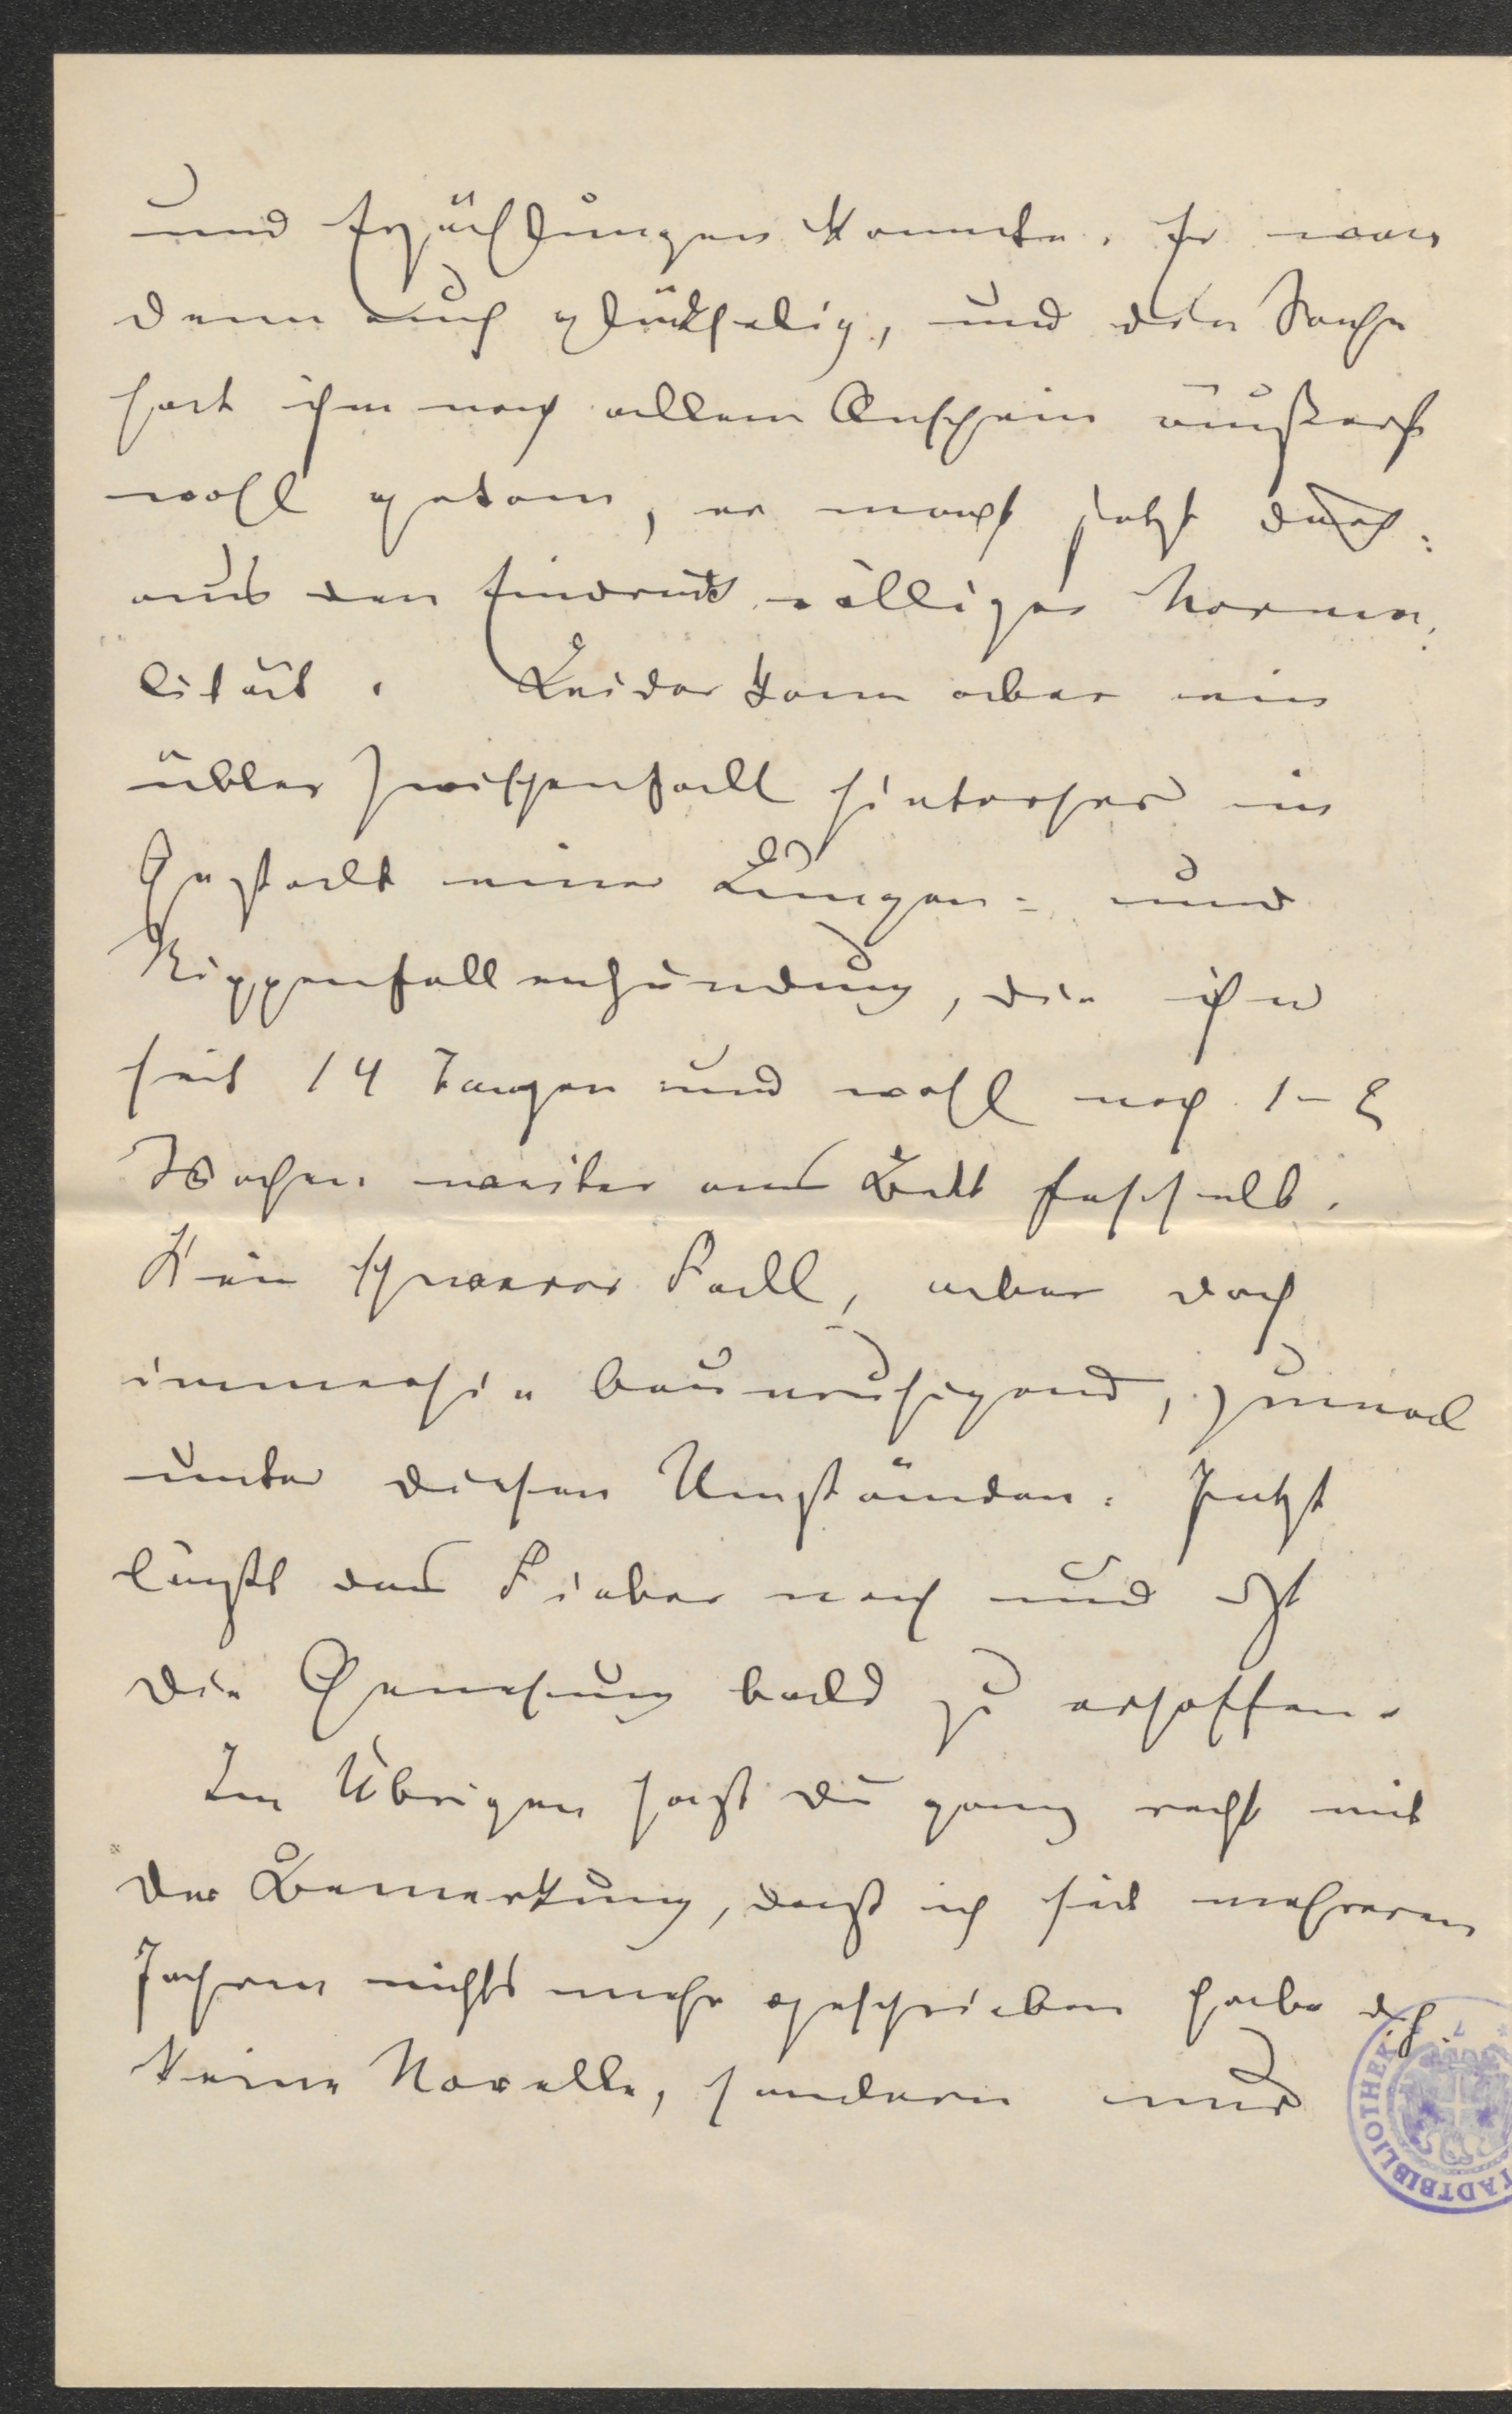 und Erzählungen kannte. Er war
denn auch glückselig, und die Sache
hat ihm nach allem Anschein äußerst
wohl getan, er macht jetzt durch=
aus den Eindruck völliger Norma=
lität. Leider kam aber ein
übler Zwischenfall hinterher in
Gestalt einer Lungen- und
Rippenfellentzündung, die ihn
seit 14 Tagen und wohl noch 1-2
Wochen weiter ans Bett fesselt.
Kein schwerer Fall, aber doch
immerhin beunruhigend, zumal
unter diesen Umständen. Jetzt
läßt das Fieber nach und ist
die Genesung bald zu erhoffen.
Im Übrigen hast Du ganz recht mit
der Bemerkung, daß ich seit mehreren
Jahren nichts mehr geschrieben habe d.h.
keine Novelle, sondern nur
STADTBIBLIOTHEK